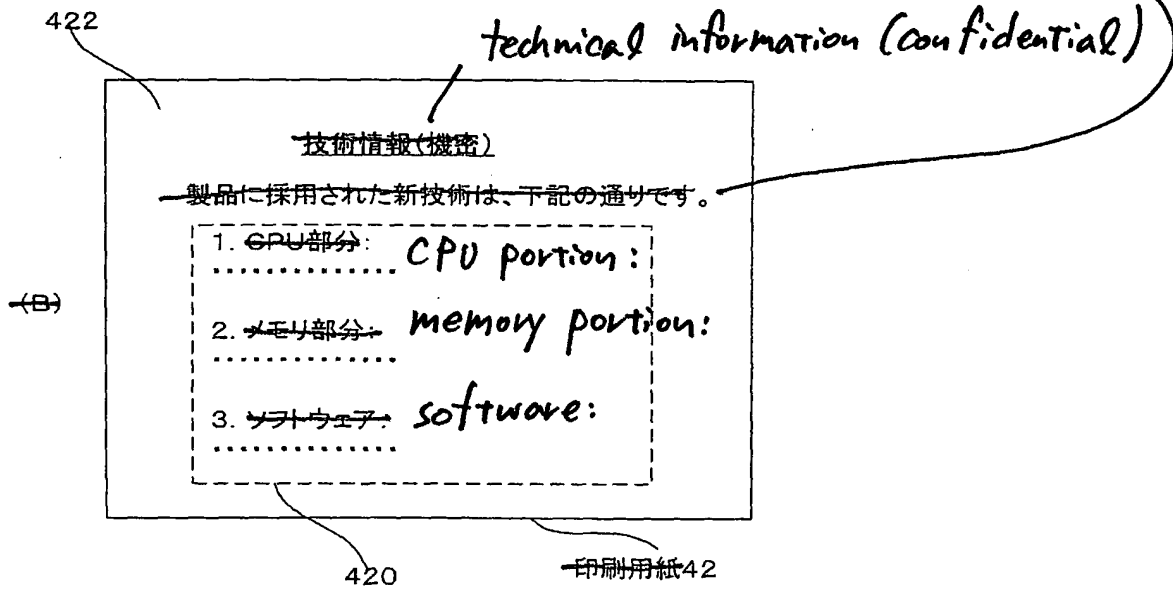 422
technical information (confidential)
技術情報(機密)
製品に採用された新技術は、下記の通りです。
1. CPU部分: CPU portion:
..............
(B)
2. メモリ部分: memory portion:
..............
3. ソフトウェア: software:
..............
420
印刷用紙42